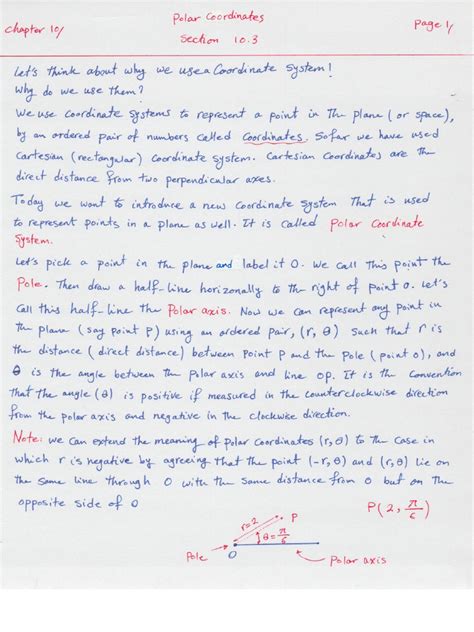 Chapter 10/
Polar Coordinates
Section 10.3
Page 1/
Let's think about why we use a Coordinate System!
Why do we use them?
We use coordinate systems to represent a point in The plane (or space),
by an ordered pair of numbers called Coordinates. So far we have used
Cartesian (rectangular) coordinate system. Cartesian coordinates are the
direct distance from two perpendicular axes.
Today we want to introduce a new coordinate system That is used
to represent points in a plane as well. It is called Polar Coordinate
System.
Let's pick a point in the plane and label it O. We call This point the
Pole. Then draw a half-line horizonally to the right of point o. Let's
call this half-line the Polar axis. Now we can represent any point in
the plane (say point P) using an ordered pair, (r, θ) such that r is
the distance (direct distance) between Point P and the Pole (point o), and
θ is the angle between the Polar axis and line op. It is the Convention
that the angle (θ) is positive if measured in the counterclockwise direction
from the polar axis and negative in the clockwise direction.
Note: we can extend the meaning of polar coordinates (r, θ) to the case in
which r is negative by agreeing that the point (-r, θ) and (r, θ) lie on
the same line through O with the same distance from o but on the
opposite side of o
P(2, π/6)
r=2
P
θ = π/6
Pole
O
Polar axis